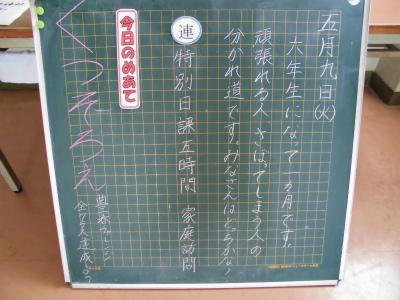 五月九日(火)
六年生になって一カ月です。
頑張れる人、さぼってしまう人の
分かれ道です。みなさんはどっちかな。
連 特別日課五時間 家庭訪問
今日のめあて
くつそろえ
全員達成しよう